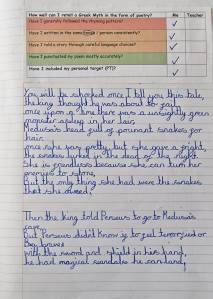 How well can I retell a Greek Myth in the form of poetry?
Me
Teacher
Have I generally followed the rhyming pattern?
Have I written in the same tense / person consistently?
Have I told a story through careful language choices?
Have I punctuated my poem mostly accurately?
Have I included my personal target (PT)?
You will be shocked once I tell you this tale,
the king thought he was about to fail
once upon a time there was a unsightly green
monster asleep in her lair
Medusa's head full of poisonant snakes for
hair.
once she was pretty but she gave a fright,
the snakes lurked in the dead of the night.
She is grandless because she can turn her
enemies to stone,
But the only thing she had were the snakes
that she owned.
Then the king told Perseus to go to Medusa's
cave,
But Perseus didn't know if to feel terrorised or
Be braves
with the sword and shield in his hand,
he had magical sandals he can land,